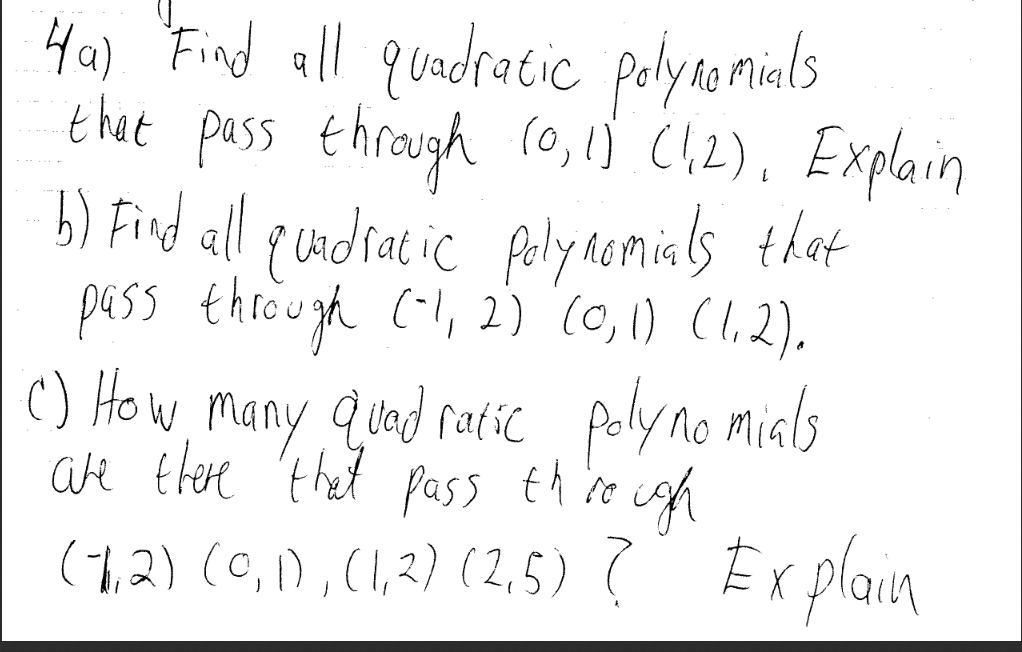 4a) Find all quadratic polynomials
that pass through (0,1) (1,2). Explain
b) Find all quadratic polynomials that
pass through (-1, 2) (0,1) (1,2).
c) How many quadratic polynomials
are there that pass through
(-1,2) (0,1), (1,2) (2,5) ? Explain